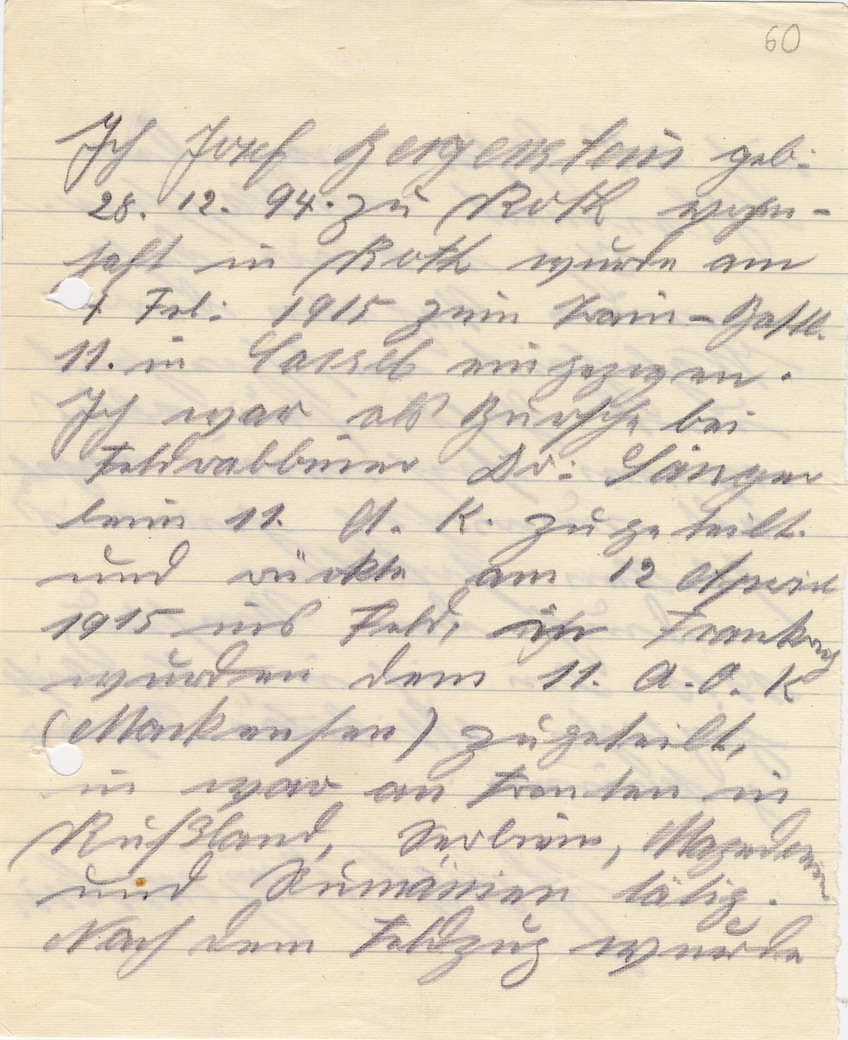 60
Ich Josef Bergenstein geb:
28. 12. 94. zu Roth wohn-
haft in Roth wurde am
Feb: 1915 zum Train-Batl.
11. in Cassel eingezogen.
Ich war als Bursche bei
Feldrabbiner Dr: Sänger
beim 11. A. K. zugeteilt.
und rückte am 12 April
1915 ins Feld, in Frankr
wurden dem 11. A.O.K
(Mackensen) zugeteilt,
in war an Fronten in
Rußland, Serbien, Mazedonien
und Rumänien tätig.
Nach dem Feldzug wurde